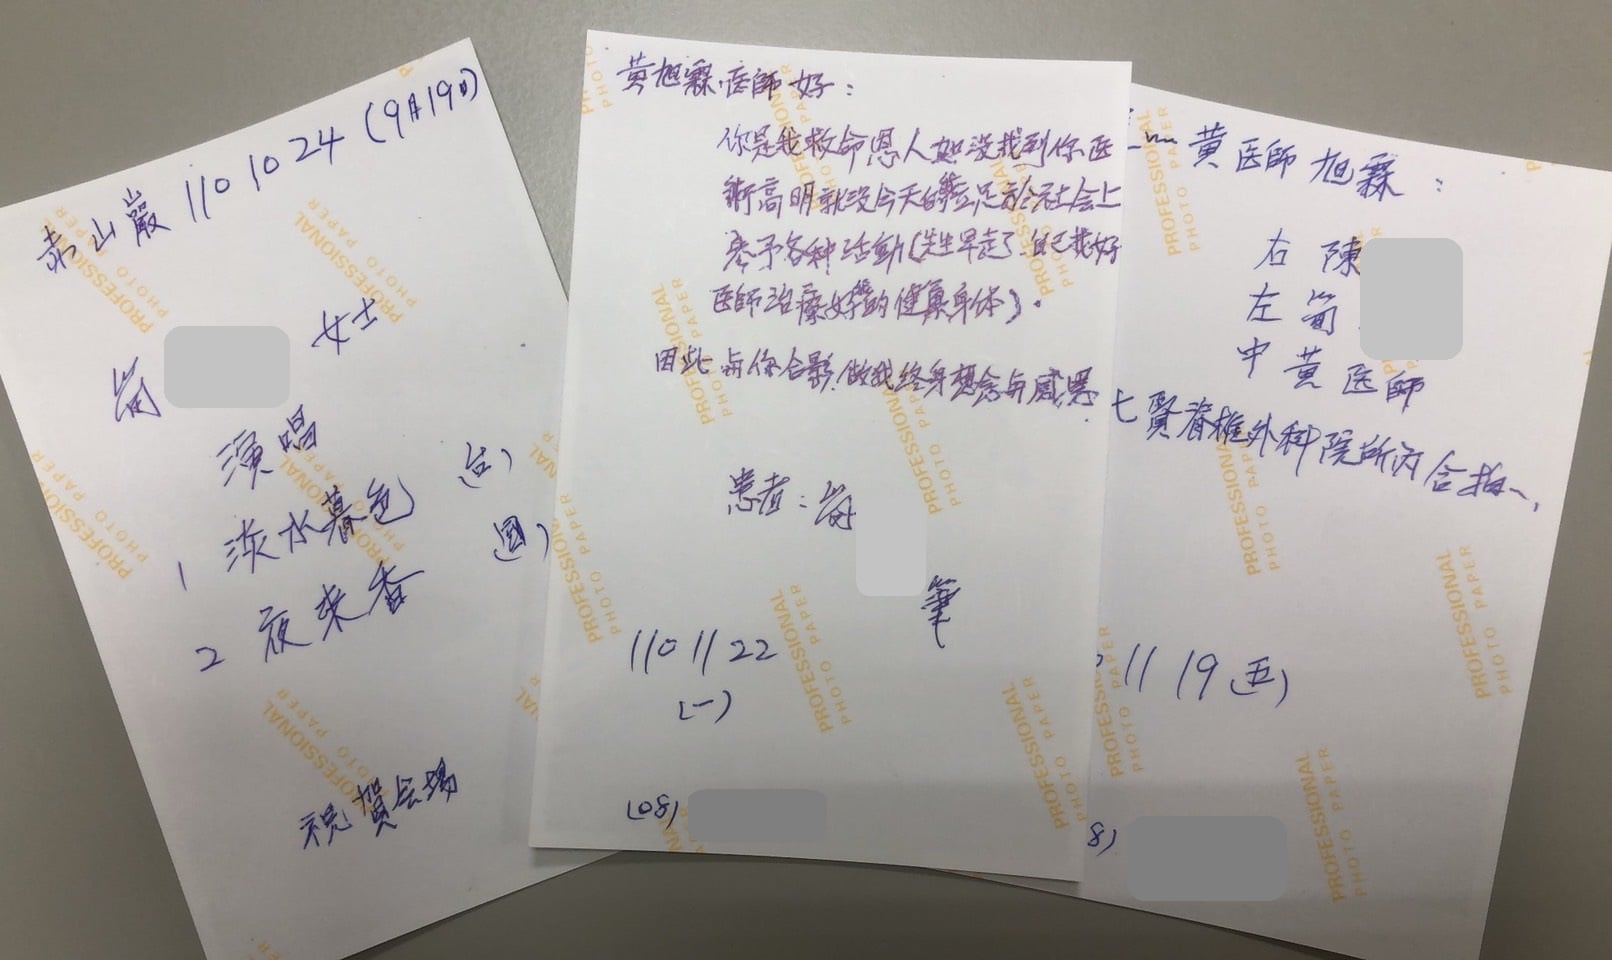 赤山巖 110 10 24 (9月19日)
女士
演唱
1 淡水暮色 (台)
2 夜來香 (國)
祝賀会場
黃旭霖医師好：
你是我救命恩人如没找到你医
術高明就没今天的站立足於社会上
參予各种活動(先生早走了自己找好
医師治療好的健康身体)。
因此与你合影.做我終身想念与感恩.
患者：
筆
110 11 22
(一)
(08)
黃医師旭霖：
右 陳
左
中 黃医師
七賢脊椎外科院所内合拍
11 19 (五)
8)
PROFESSIONAL
PHOTO PAPER